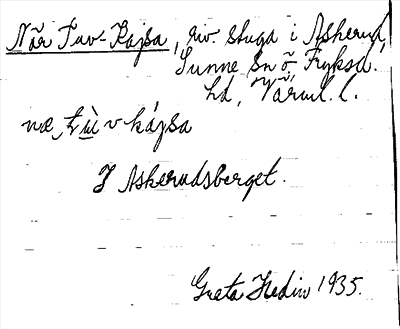 När Tuv-Kajsa, riv. stuga i Askerud,
Sunne sn o Fryksd.
hd, Värml. l.
kájsa
I Askerudsberget.
Greta Hedin 1935.